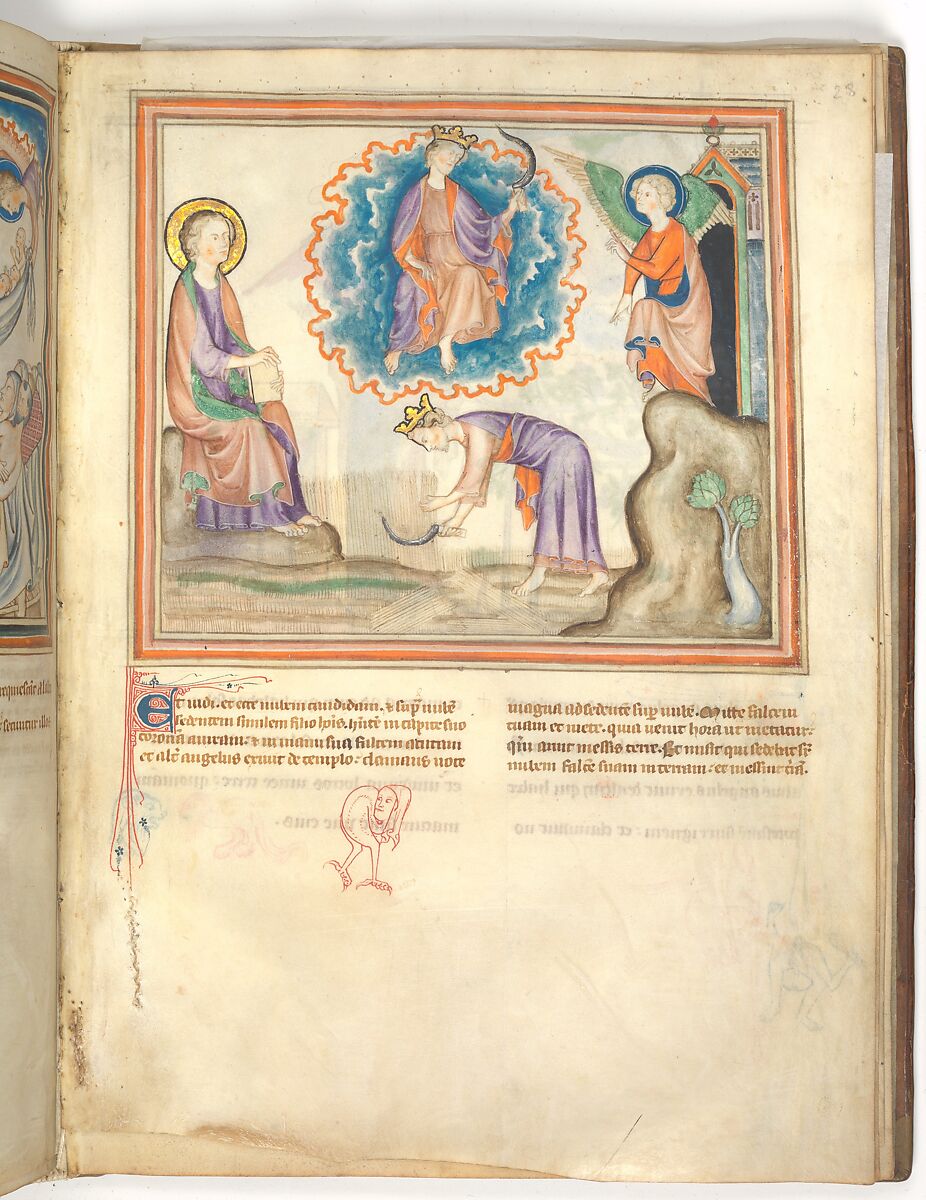 28
Et uidi. et ecce nubem candidam. & sup nubē
sedentem similem filio hoīs. hītē in capite suo
coronā auream: & in manu sua falcem acutam
et alt̄ angelus exiuit de templo: clamans uoce
magna ad sedentē sup nubē. Mitte falcem
tuam et mete. quia uenit hora ut metatur:
qm̄ aruit messis terre. Et misit qui sedebat sr̄
nubem falcē suam in terram: et messuit t̄rā.
requiescāt a lab
secuntur illos